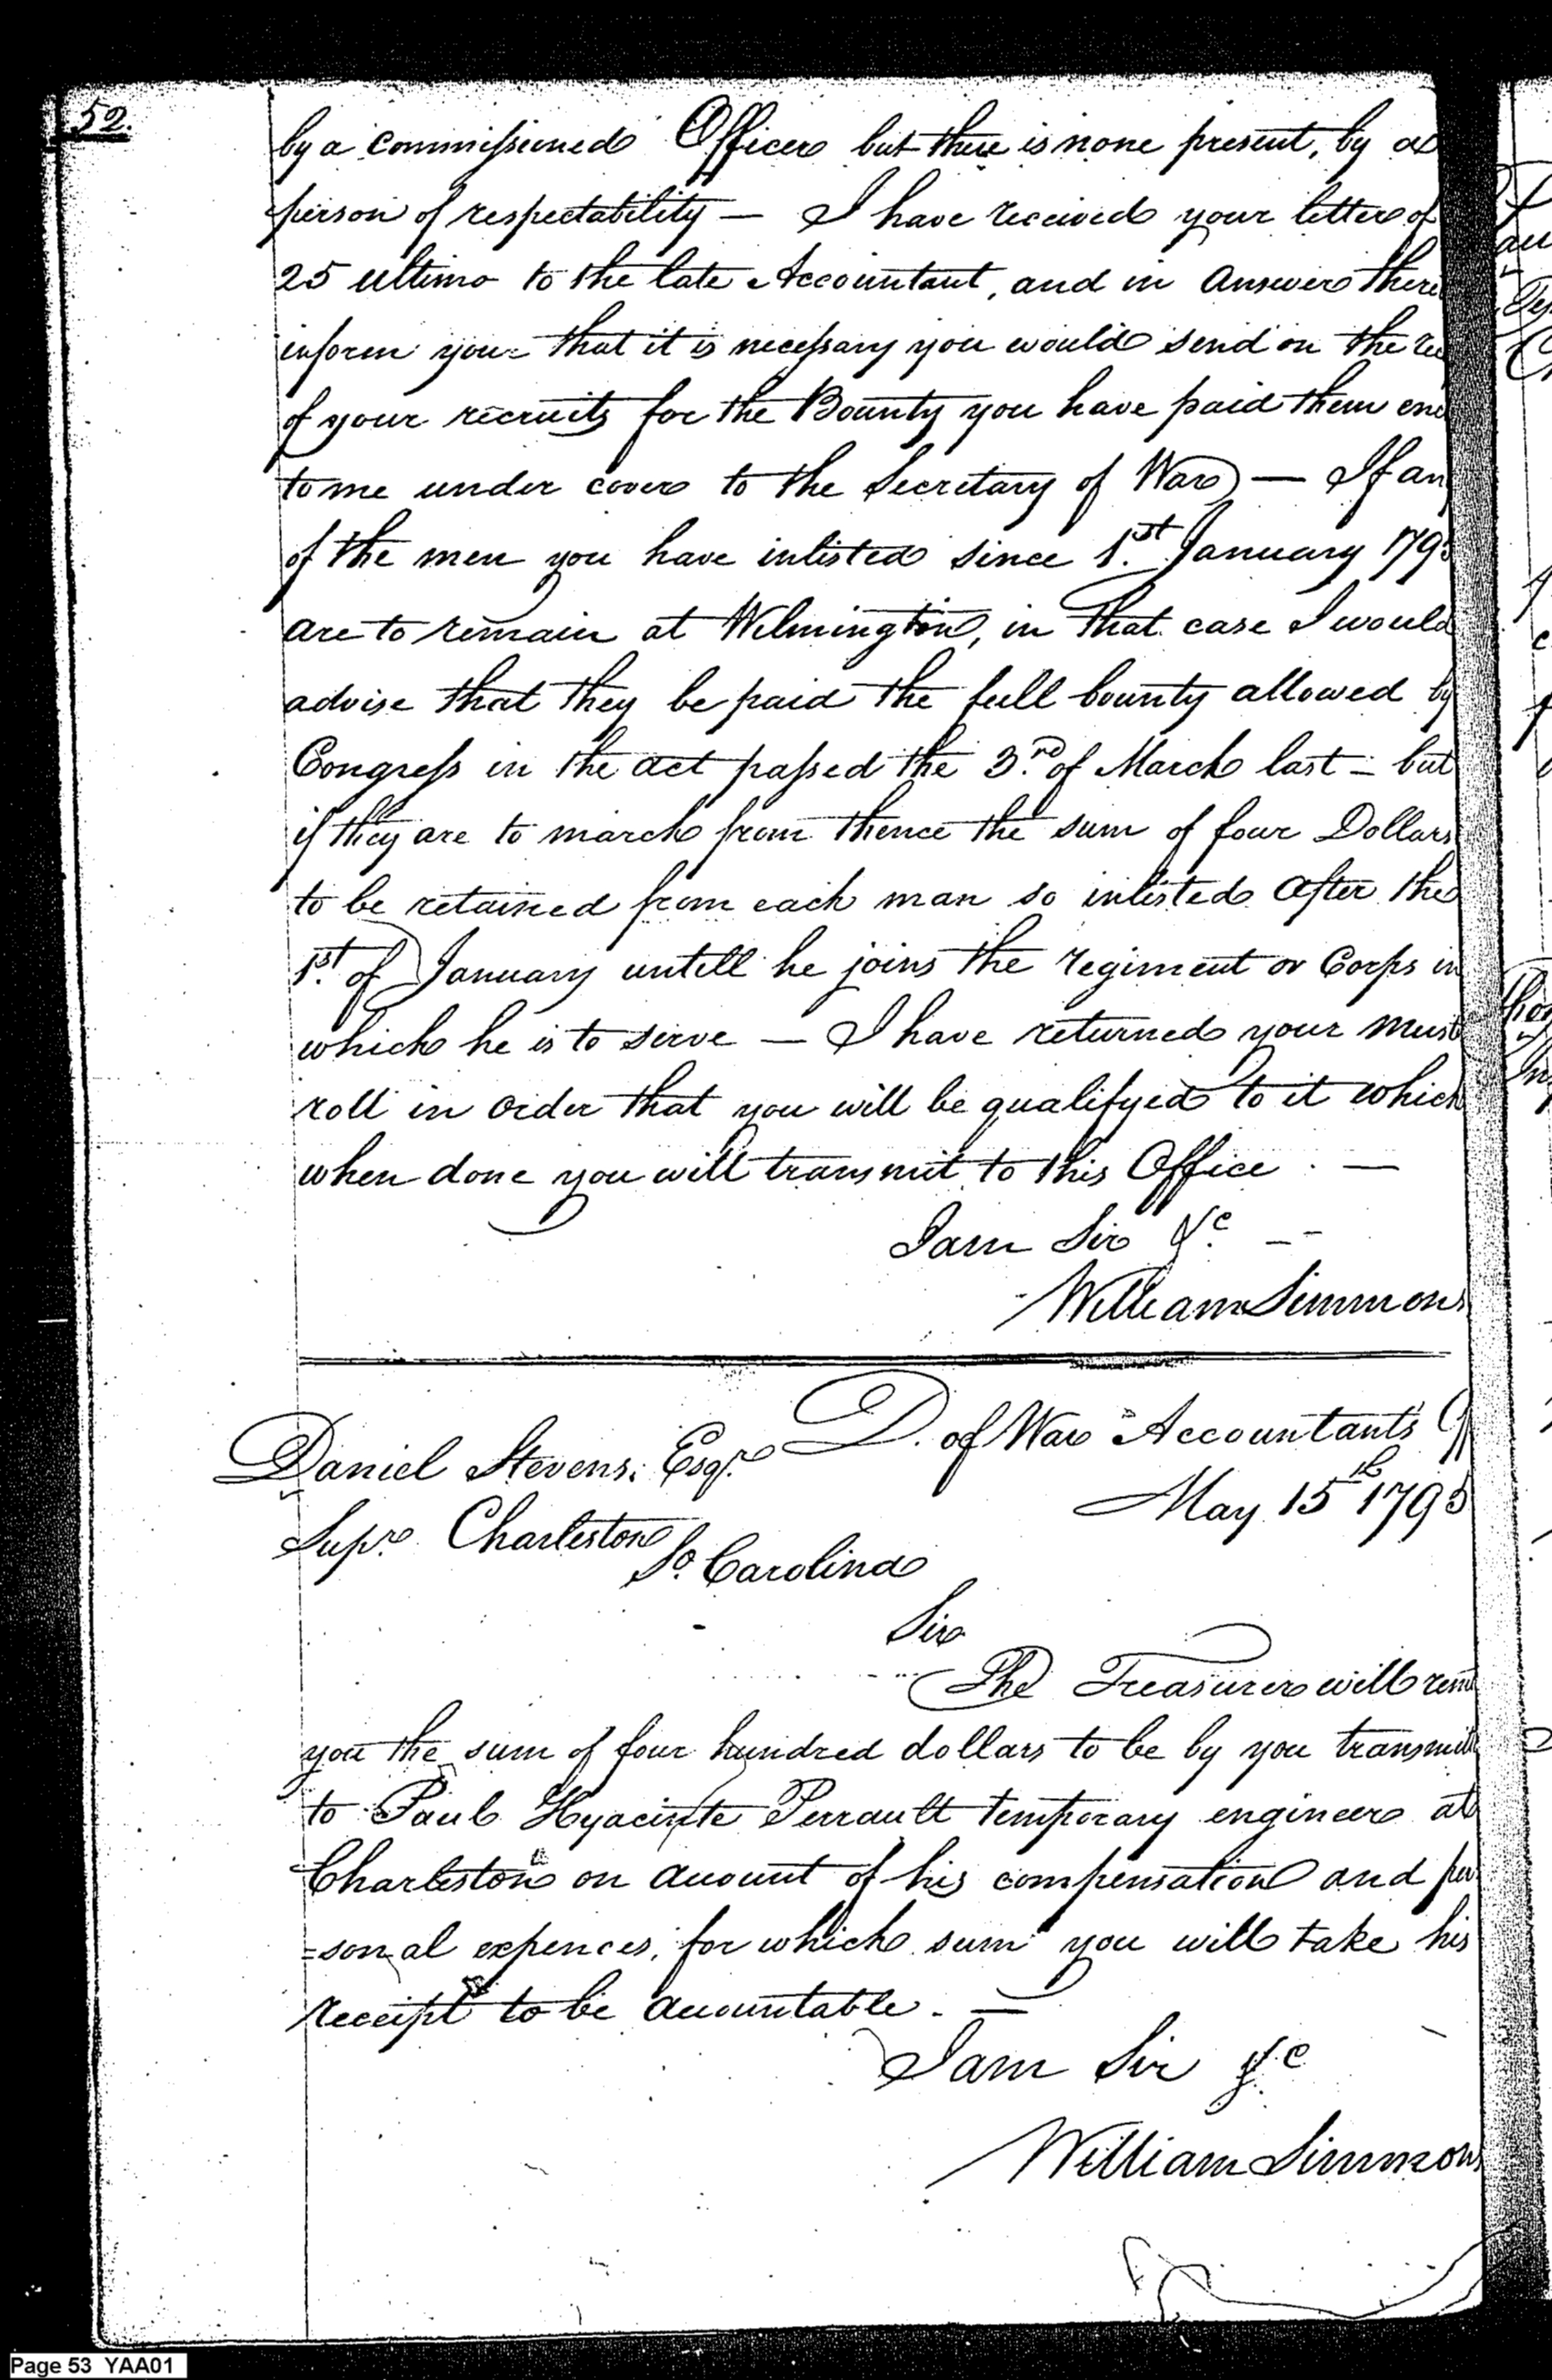 52.
by a commissioned Officer but there is none present, by a
person of respectability — I have received your letter of
25 ultimo to the late Accountant, and in Answer there
inform you that it is necessary you would send on the rec
of your recruits for the Bounty you have paid them enc
to me under cover to the Secretary of War — If an
of the men you have inlisted since 1.st January 1795
are to remain at Wilmington, in that case I would
advise that they be paid the full bounty allowed by
Congress in the act passed the 3.rd of March last — but
if they are to march from thence the sum of four Dollars
to be retained from each man so inlisted After the
1.st of January untill he joins the regiment or Corps in
which he is to serve — I have returned your Must
roll in order that you will be qualifyed to it which
when done you will transmit to this Office. —
I am Sir &c. — —
William Simmons
D. of War Accountants Off
Daniel Stevens. Esqr.
May 15th 1795
Supr. Charleston
So. Carolina
Sir
The Treasurer will remit
you the sum of four hundred dollars to be by you transmitt
to Paul Hyacinte Perrault temporary engineer at
Charleston on account of his compensation and per
=sonal expences, for which sum you will take his
receipt to be accountable. —
I am Sir &c
William Simmons
Page 53 YAA01